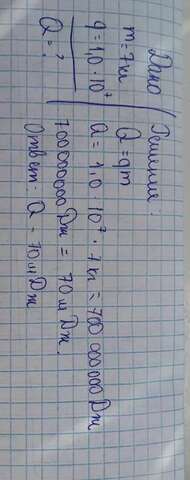 Дано
m = 7 кг
q = 1,0 · 10⁷
Q = ?
Решение:
Q = qm
Q = 1,0 · 10⁷ · 7 кг = 700 000 000 Дж
700000000 Дж = 70 мДж.
Ответ: Q - 70 мДж